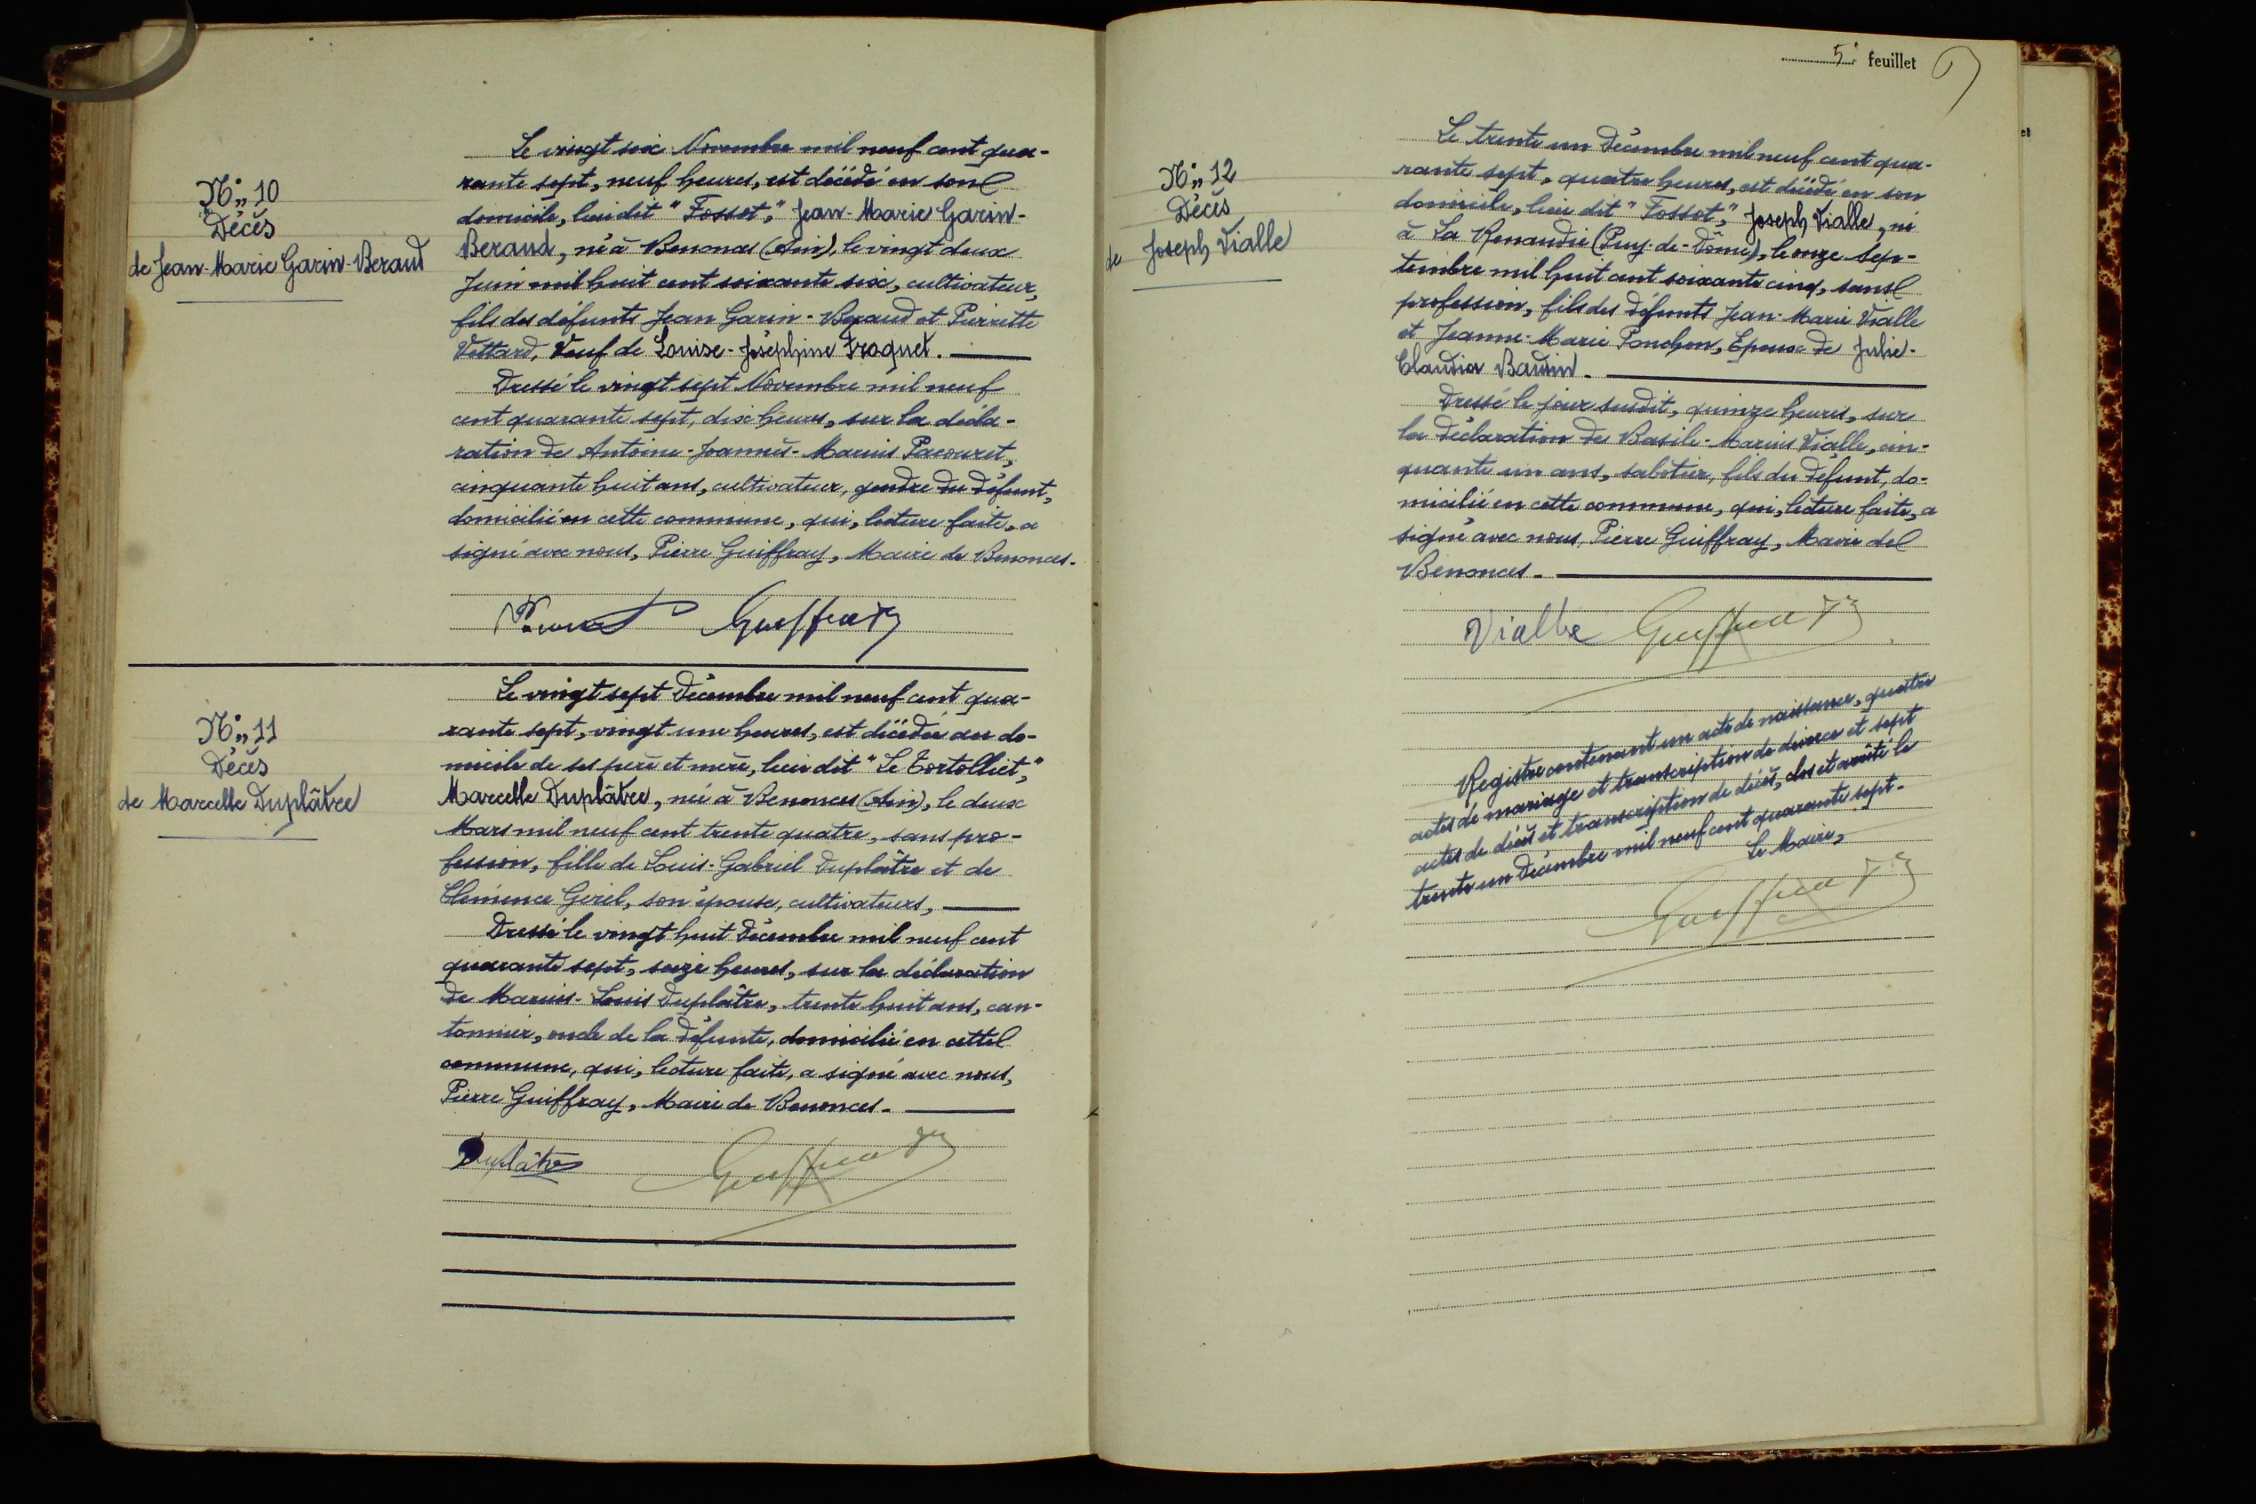 N° 10
Décès
de Jean-Marie Garin-Beraud
Le vingt six Novembre mil neuf cent qua-
rante sept, neuf heures, est décédé en son
domicile, lieu dit "Fosset," Jean-Marie Garin-
Beraud, né à Benonces (Ain), le vingt deux
Juin mil huit cent soixante six, cultivateur,
fils des défunts Jean Garin-Beraud et Pierrette
Vettard, Veuf de Louise-Joséphine Traquet.
Dressé le vingt sept Novembre mil neuf
cent quarante sept, dix heures, sur la décla-
ration de Antoine-Joannès-Marius Pacouret,
cinquante huit ans, cultivateur, gendre du défunt,
domicilié en cette commune, qui, lecture faite, a
signé avec nous, Pierre Guiffray, Maire de Benonces.
Guiffray
N° 11
Décès
de Marcelle Duplâtre
Le vingt sept Décembre mil neuf cent qua-
rante sept, vingt une heures, est décédée au do-
micile de ses père et mère, lieu dit "Le Tortolliet,"
Marcelle Duplâtre, née à Benonces (Ain), le deux
Mars mil neuf cent trente quatre, sans pro-
fession, fille de Louis-Gabriel Duplâtre et de
Clémence Girel, son épouse, cultivateurs,
Dressé le vingt huit Décembre mil neuf cent
quarante sept, seize heures, sur la déclaration
de Marius-Louis Duplâtre, trente huit ans, can-
tonnier, oncle de la défunte, domicilié en cette
commune, qui, lecture faite, a signé avec nous,
Pierre Guiffray, Maire de Benonces.
Duplâtre Guiffray
5° feuillet
N° 12
Décès
de Joseph Vialle
Le trente un Décembre mil neuf cent qua-
rante sept, quatre heures, est décédé en son
domicile, lieu dit "Fossot," Joseph Vialle, né
à La Renaudie (Puy-de-Dôme), le onze Sep-
tembre mil huit cent soixante cinq, sans
profession, fils des défunts Jean-Marie Vialle
et Jeanne-Marie Ponchon, Epoux de Julie-
Claudia Baudin.
Dressé le jour susdit, quinze heures, sur
la déclaration de Basile-Marius Vialle, cin-
quante un ans, sabotier, fils du défunt, do-
micilié en cette commune, qui, lecture faite, a
signé avec nous, Pierre Guiffray, Maire de
Benonces.
Vialle Guiffray
Registre contenant un acte de naissance, quatre
actes de mariage et transcription de divorce et sept
actes de décès et transcription de décès, clos et arrêté le
trente un Décembre mil neuf cent quarante sept.
Le Maire,
Guiffray